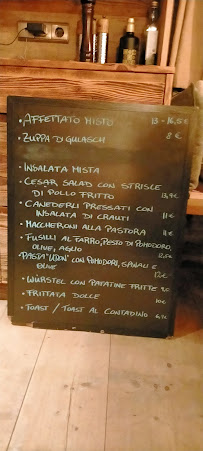 • AFFETTATO MISTO 13 - 16,5€
• ZUPPA DI GULASCH 8 €
• INSALATA MISTA
• CESAR SALAD CON STRISCE
DI POLLO FRITTO 13,9€
• CANEDERLI PRESSATI CON
INSALATA DI CRAUTI 11€
• MACCHERONI ALLA PASTORA 11€
• FUSILLI AL FARRO, PESTO DI POMODORO,
OLIVE, AGLIO
PASTA "UDON" CON POMODORI, E
OLIVE 12€
• WÜRSTEL CON PATATINE FRITTE
• FRITTATA DOLCE 10€
• TOAST / TOAST AL CONTADINO